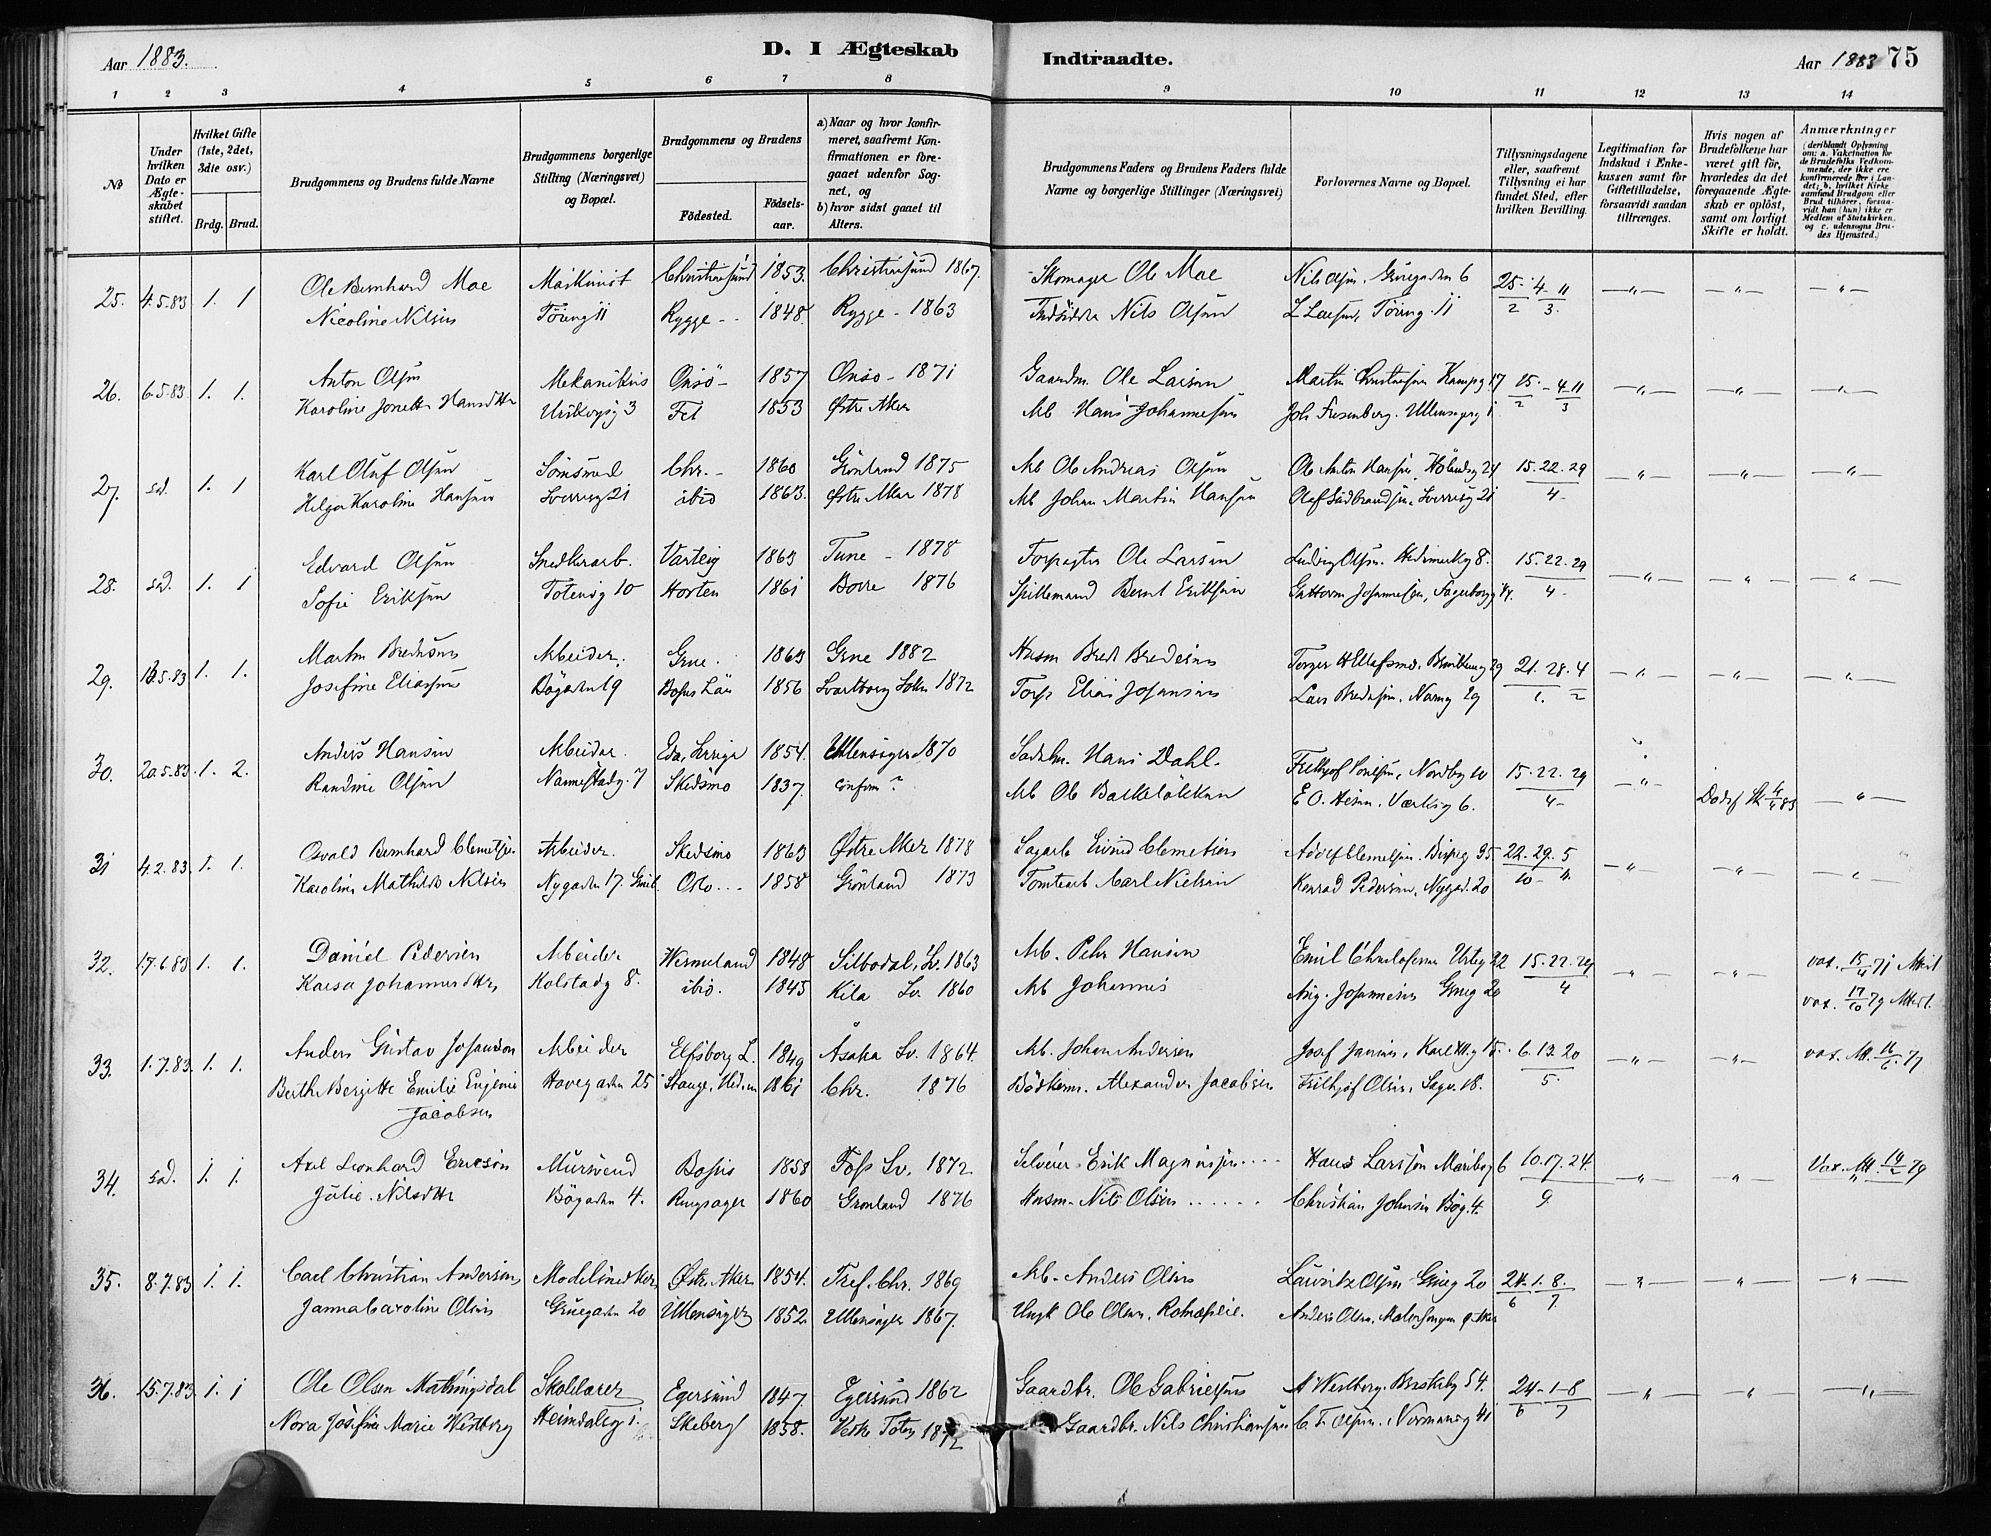 Aar 1883.
D. I Ægteskab
Indtraadte.
Aar 1883 75
1 2 3 4 5 6 7 8 9 10 11 12 13 14
No
Under hvilken Dato er Ægteskabet stiftet.
Hvilket Gifte (1ste, 2det, 3die osv.)
Brdg. Brud.
Brudgommens og Brudens fulde Navne
Brudgommens borgerlige Stilling (Næringsvei) og Bopæl.
Brudgommens og Brudens
Födested.
Födselsaar.
a) Naar og hvor konfirmeret, saafremt Konfirmationen er foregaaet udenfor Sognet, og
b) hvor sidst gaaet til Alters.
Brudgommens Faders og Brudens Faders fulde Navne og borgerlige Stillinger (Næringsvei)
Forlovernes Navne og Bopæl.
Tillysningsdagene eller, saafremt Tillysning ei har fundet Sted, efter hvilken Bevilling.
Legitimation for Indskud i Enkekassen samt for Giftetilladelse, forsaavidt saadan tiltrænges.
Hvis nogen af Brudefolkene har været gift för, hvorledes da det foregaaende Ægteskab er oplöst, samt om lovligt Skifte er holdt.
Anmærkninger (deriblandt Oplysning om: a. Vakcination for de Brudefolks Vedkommende, der ikke ere konfirmerede her i Landet; b. hvilket Kirkesamfund Brudgom eller Brud tilhörer, forsaavidt han (hun) ikke er Medlem af Statskirken, og c. udensogns Brudes Hjemsted.)
25. 4.5.83 1. 1 Ole Bernhard Moe Maskinist Christiansund 1853. Christiansund 1867. Skomager Ole Moe Nils Olsen, Gruegaden 6 25-4-11
Nicoline Nilsen Töieng 11 Rygge 1848. Rygge - 1863 Nils Olsen L Larsen, Töieng. 11 2 3.
26. 6.5.83 1. 1. Anton Olsen Mekanikus Onsö 1857 Onsö - 1871 Gaardm. Ole Larsen 15. - 4 11
Karoline Hansdtr 3 Fet 1853 Østre Aker Arb Hans Johannesen 2 3
27. sad. 1. 1 Karl Oluf Olsen Chr. 1860 Grönland 1875 Arb Ole Andreas Olsen Ole Anton Hansen, 24 15.22.29
Helga Karoline Hansen Sverresg 21 ibid 1863. Østre Aker 1878 Arb Johan Martin Hansen Sverresg 21 4
28. sad. 1. 1 Edvard Olsen Snedkerarb. Varteig 1863 Tune - 1878 Ole Larsen Ludvig Olsen. Hedemarksg 8. 15.22.29
Sofie Eriksen Totensg 10 Horten 1861 Borre 1876 Spillemand Bernt Eriksen Johannesen, Fagerborgg 14. 4
29. 13.5.83 1. 1. Martin Bredesen Arbeider. Grue. 1863 Grue 1882 Husm Brede Bredesen 29 21.28.4
Josefine Eliasen Bögaden 19 Bohus Län 1856 1872 Torp Elias Johansen Lars Bredesen, Normg 29 1. 2
30. 20.5.83 1. 2. Anders Hansen Arbeider. Eda, Sverige 1854. Ullensager 1870 Hans Dahl. Nordbyg 10 15.22.29
Randine Olsen Nannestadg. 7 Skedsmo 1837. confirm? Arb Ole E O. Værksg 6. 4 Dödsf Sk 4/4 83
31 4.2.83 1. 1. Osvald Bernhard Clemetsen Arbeider. Skedsmo 1863 Østre Aker 1878 Sagarb Eivind Clemetsen Adolf Clemetsen. Bispeg 35. 22.29.5
Karoline Mathilde Nilsen Nygaden 17. Oslo 1858 Grönland 1873 Tomtearb Carl Nielsen Konrad Pedersen, Nygad. 20 10 - 11
32. 17.6.83 1. 1. Daniel Pedersen Arbeider Wermeland 1848 Silbodal, Sv. 1863 Arb. Peter Hansen Emil Christofersen Urteg 22 15.22.29 vax. 15/4 71 Attest
Kaisa Johannesdtr Holstadg 8. ibid. 1845 Kila Sv 1860 Arb Johannes Aug. Johannesen Grueg 20 4 vax. 17/10 79 Attest.
33. 1.7.83 1. 1. Anders Gustav Johanson Arbeider Elfsborg L. 1849 Åsaka Sv. 1864. Arb. Johan Andersen Karl XII.g 15. 6.13.20
Berthe Bergitte Emilie Eugenie Jacobsen Havegaden 25 Stange, Hedem 1861 Chr. 1876 Bödkerm. Alexander Jacobsen Frithjof Olsen, Sagv. 18. 5.
34. sad. 1. 1. Axel Leonhard Ericson Mursvend Bohus 1858 Foss Sv. 1872. Erik Magnusson Hans Larsson Maribog 6 10.17.24.
Julie. Nilsdtr Bögaden 4. Ringsager 1860 Grönland 1876 Husm. Nils Olsen Christian Johnsen Bög. 4. 9.
35. 8.7.83 1. 1. Carl Christian Andersen Modelsnedker Østre Aker 1854. Tref. Chr. 1869 Arb. Anders Olsen Lauritz Olsen Grueg 20 24.1.8.
Janna Caroline Olsen Gruegaden 20 Ullensager 1852. Ullensager 1867. Ungk Ole Olsen, Anders Olsen, 6 7.
36. 15.7.83. 1. 1 Ole Olsen Mathingsdal Skolelærer Egersund 1847. Egersund 1862 Gaardbr. Ole Gabrielsen A Westberg. Briskeby 54. 24-1-8
Nora Josefine Marie Westberg Heimdalsg 1. Skeberg 1858. Vestre Toten 1872 Gaardbr. Nils Christiansen C. F. Olsen, Normannsg 41 6 7